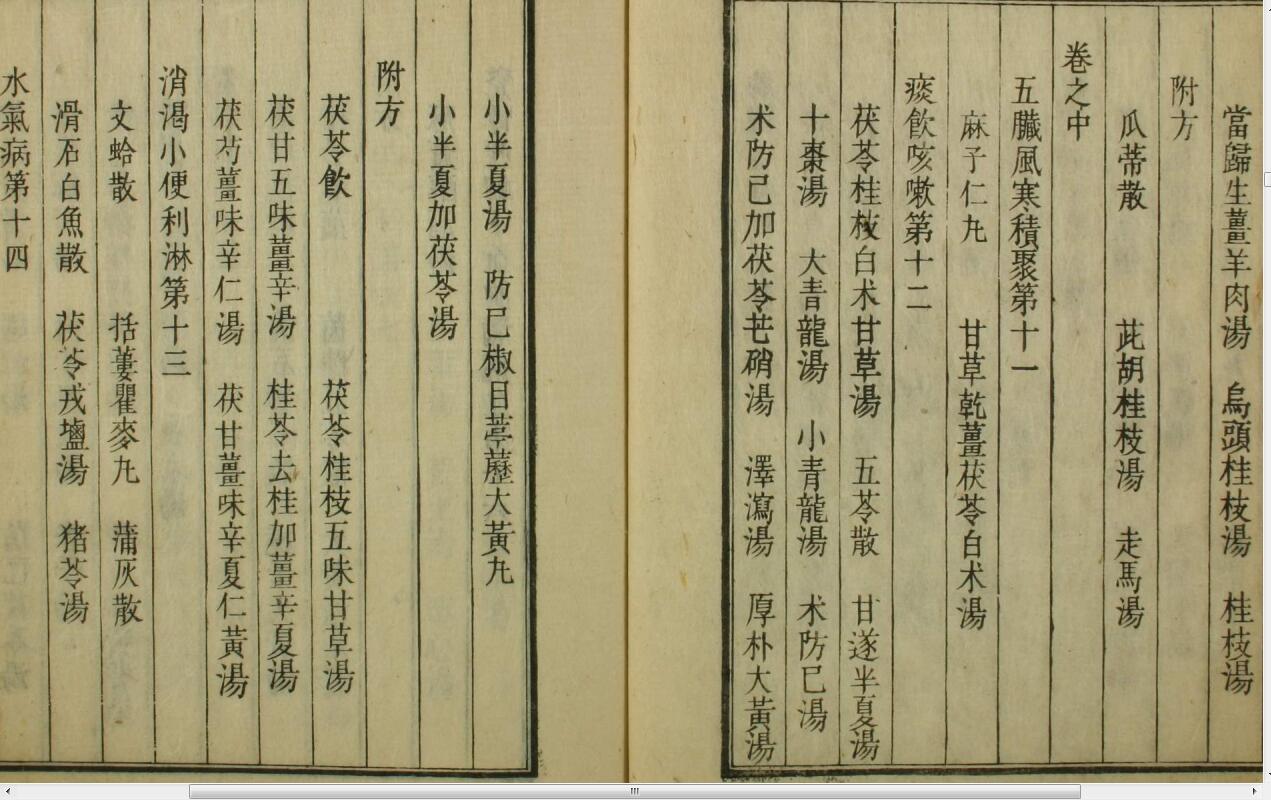 當歸生薑羊肉湯　烏頭桂枝湯　桂枝湯
附方
瓜蒂散　茈胡桂枝湯　走馬湯
卷之中
五臟風寒積聚第十一
麻子仁九　甘草乾薑茯苓白术湯
痰飲咳嗽第十二
茯苓桂枝白术甘草湯　五苓散　甘遂半夏湯
十棗湯　大青龍湯　小青龍湯　术防已湯
术防已加茯苓芒硝湯　澤瀉湯　厚朴大黃湯
小半夏湯　防已椒目葶藶大黃九
小半夏加茯苓湯
附方
茯苓飲　茯苓桂枝五味甘草湯
茯甘五味薑辛湯　桂苓去桂加薑辛夏湯
茯芍薑味辛仁湯　茯甘薑味辛夏仁黃湯
消渴小便利淋第十三
文蛤散　括蔞瞿麥九　蒲灰散
滑石白魚散　茯苓戎塩湯　猪苓湯
水氣病第十四